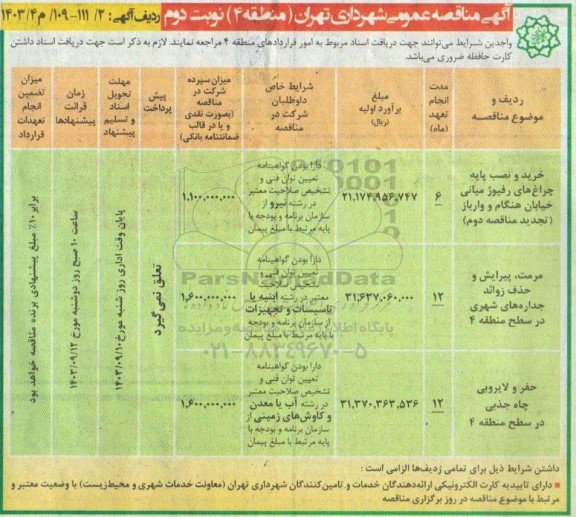 آگهی مناقصه عمومی شهرداری تهران (منطقه ۴) نوبت دوم
ردیف آگهی: ۲/ ۱۱۱- ۱۰۹/ م۱۴۰۳/۴
واجدین شرایط می‌توانند جهت دریافت اسناد مربوط به امور قراردادهای منطقه ۴ مراجعه نمایند. لازم به ذکر است جهت دریافت اسناد داشتن
کارت حافظه ضروری می‌باشد.
ردیف و
موضوع مناقصه
مدت
انجام
تعهد
(ماه)
مبلغ
برآورد اولیه
(ریال)
شرایط خاص
داوطلبان
شرکت در
مناقصه
میزان سپرده
شرکت در
مناقصه
(بصورت نقدی
و یا در قالب
ضمانتنامه بانکی)
پیش
پرداخت
مهلت
تحویل
اسناد
و تسلیم
پیشنهاد
زمان
قرائت
پیشنهادها
میزان
تضمین
انجام
تعهدات
قرارداد
خرید و نصب پایه
چراغ‌های رفیوژ میانی
خیابان هنگام و وارباز
(تجدید مناقصه دوم)
۶
۲۱,۱۷۴,۹۵۶,۷۴۷
دارا بودن گواهینامه
تعیین توان فنی و
تشخیص صلاحیت معتبر
در رشته نیرو از
سازمان برنامه و بودجه با
پایه مرتبط با مبلغ پیمان
۱,۱۰۰,۰۰۰,۰۰۰
مرمت، پیرایش و
حذف زوائد
جداره‌های شهری
در سطح منطقه ۴
۱۲
۳۱,۶۳۷,۰۶۰,۰۰۰
دارا بودن گواهینامه
تعیین توان فنی و
معتبر در رشته ابنیه یا
تاسیسات و تجهیزات
از سازمان برنامه و بودجه
با پایه مرتبط با مبلغ پیمان
۱,۶۰۰,۰۰۰,۰۰۰
حفر و لایروبی
چاه جذبی
در سطح منطقه ۴
۱۲
۳۱,۳۷۰,۳۶۳,۵۳۶
دارا بودن گواهینامه
تعیین توان فنی و
تشخیص صلاحیت معتبر
در رشته آب یا معدن
و کاوش‌های زمینی از
سازمان برنامه و بودجه با
پایه مرتبط با مبلغ پیمان
۱,۶۰۰,۰۰۰,۰۰۰
تعلق نمی گیرد
پایان وقت اداری روز شنبه مورخ ۱۴۰۳/۰۹/۱۰
ساعت ۱۰ صبح روز دوشنبه مورخ ۱۴۰۳/۰۹/۱۲
برابر ۱۰٪ مبلغ پیشنهادی برنده مناقصه خواهد بود
ParsNamadData
۰۲۱-۸۸۳۴۹۶۷۰-۵
داشتن شرایط ذیل برای تمامی ردیف‌ها الزامی است:
■ دارای تاییدیه کارت الکترونیکی ارائه‌دهندگان خدمات و تامین‌کنندگان شهرداری تهران (معاونت خدمات شهری و محیط‌زیست) با وضعیت معتبر و
مرتبط با موضوع مناقصه در روز برگزاری مناقصه